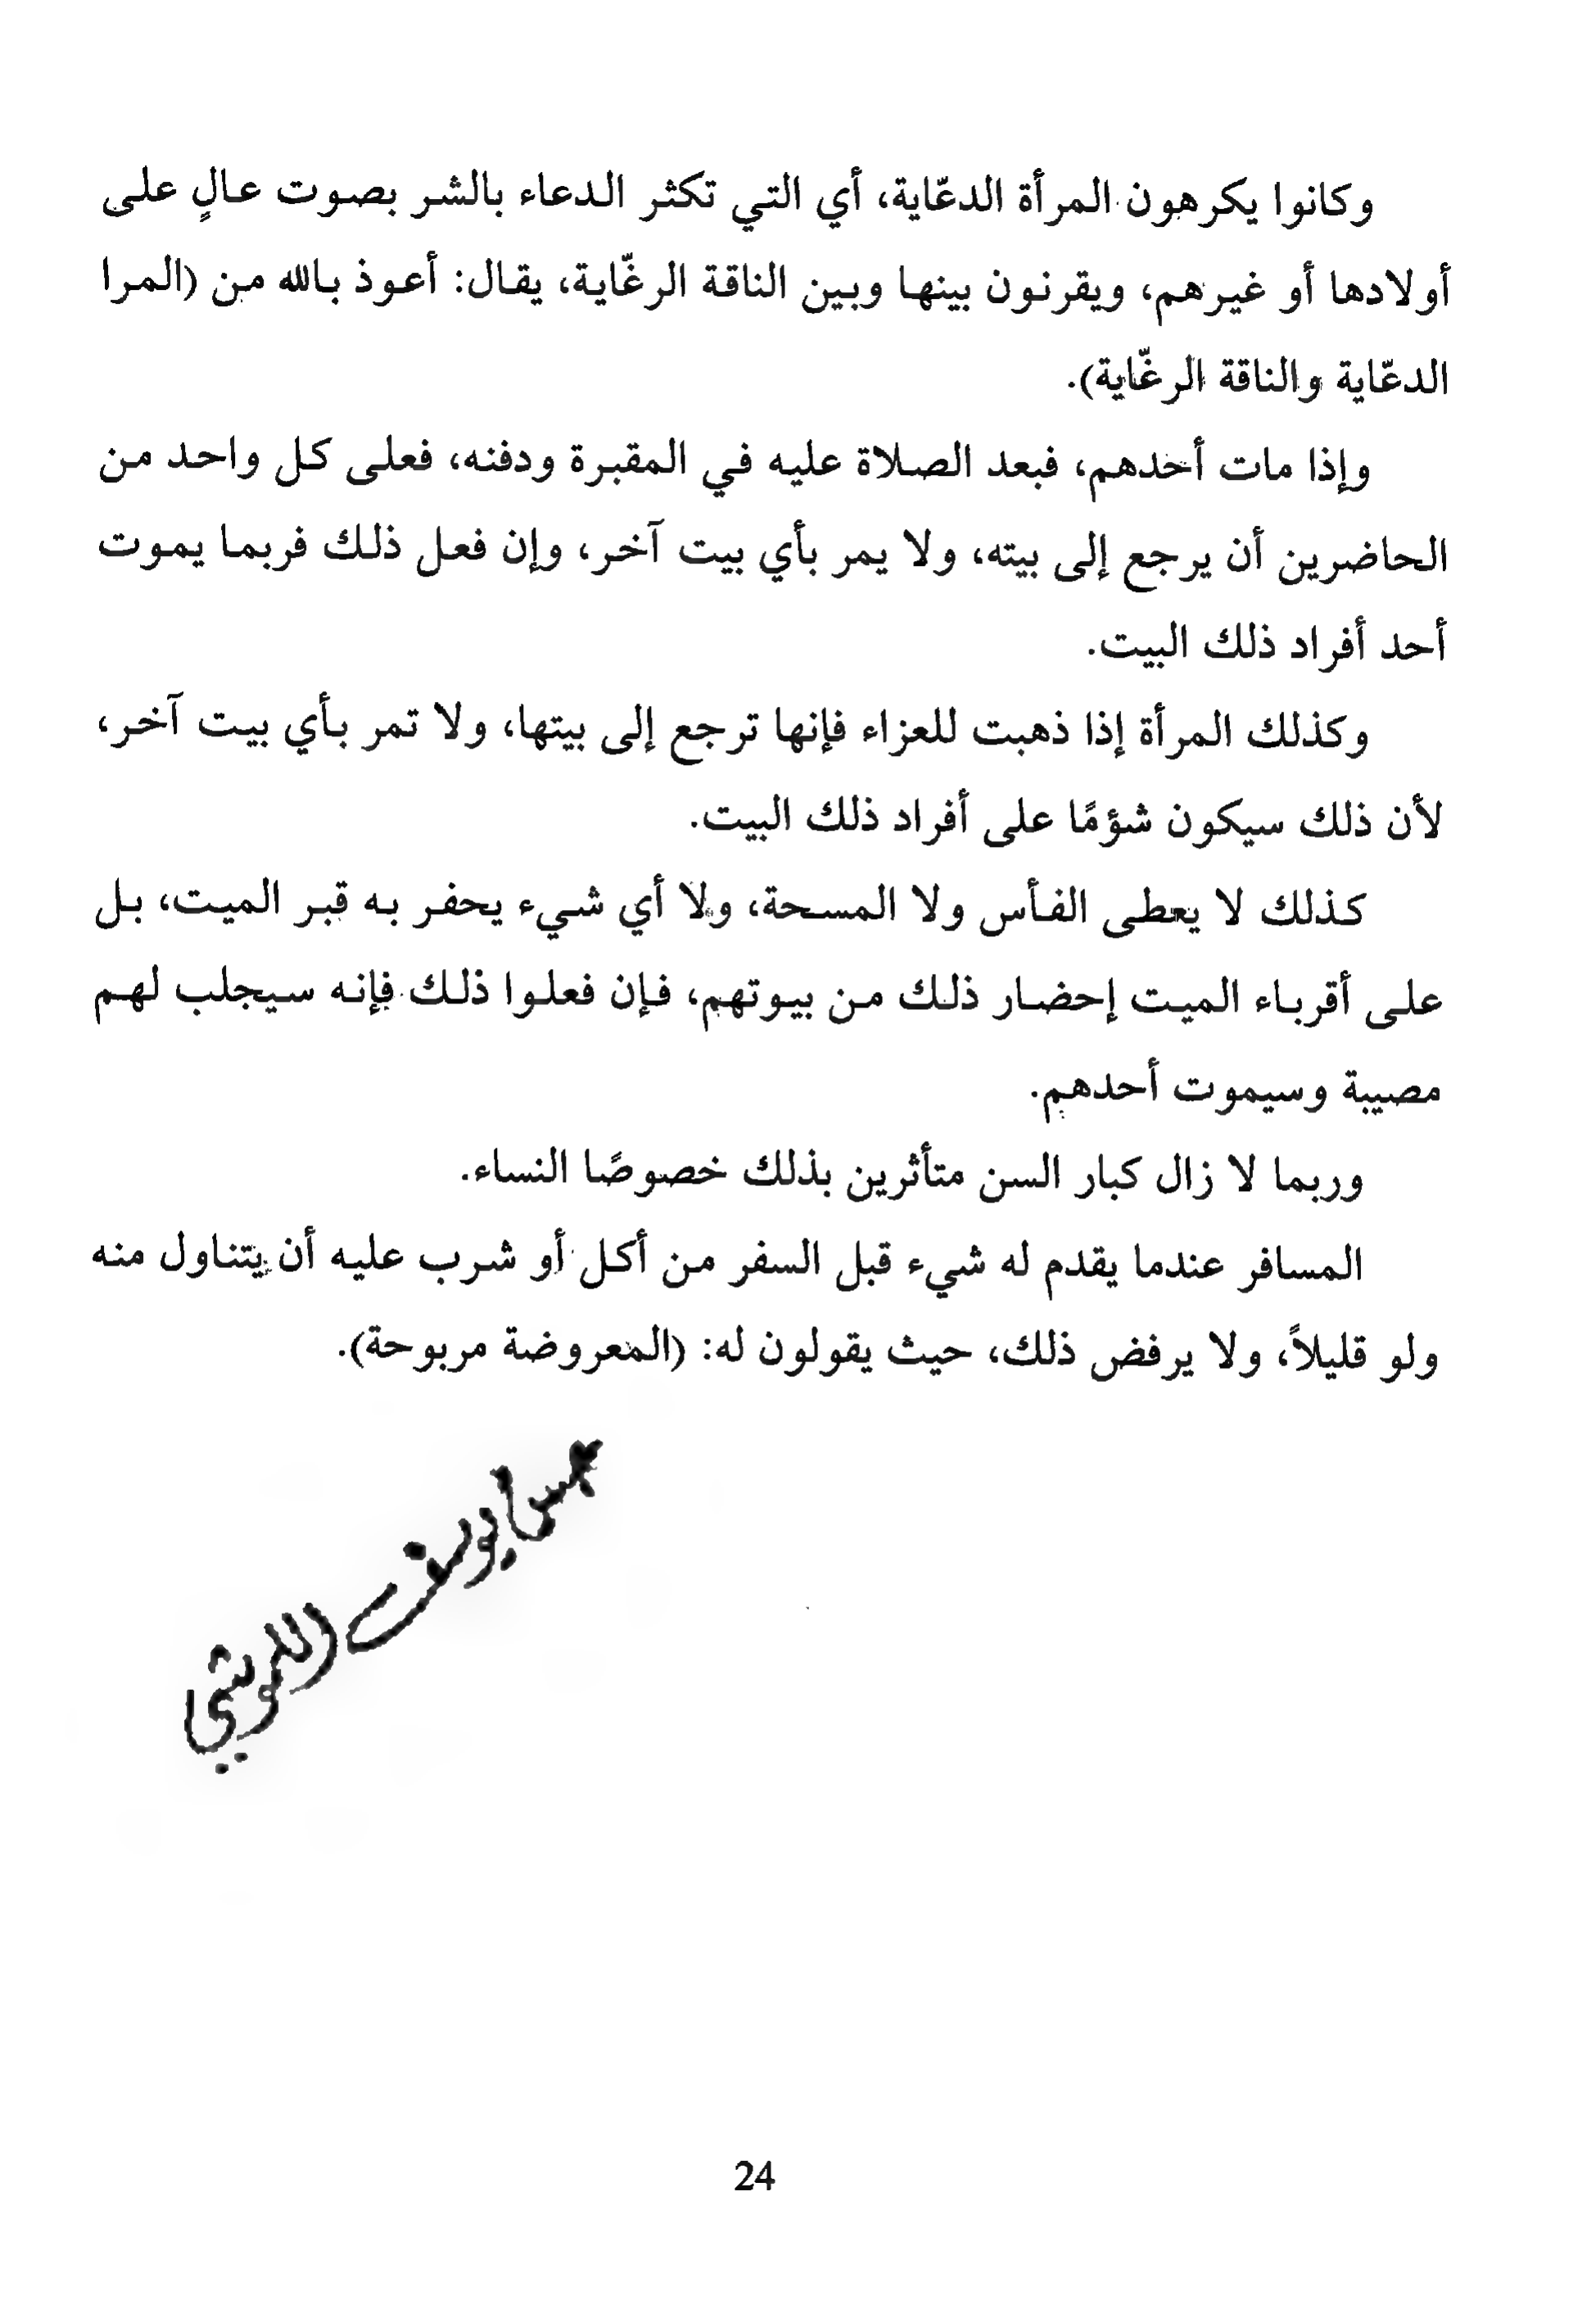 وكانوا يكرهون المرأة الدعّاية، أي التي تكثر الدعاء بالشر بصوت عالٍ على
أولادها أو غيرهم، ويقرنون بينها وبين الناقة الرغّاية، يقال: أعوذ بالله من (المرا
الدعّاية والناقة الرغّاية).
وإذا مات أحدهم، فبعد الصلاة عليه في المقبرة ودفنه، فعلى كل واحد من
الحاضرين أن يرجع إلى بيته، ولا يمر بأي بيت آخر، وإن فعل ذلك فربما يموت
أحد أفراد ذلك البيت.
وكذلك المرأة إذا ذهبت للعزاء فإنها ترجع إلى بيتها، ولا تمر بأي بيت آخر،
لأن ذلك سيكون شؤمًا على أفراد ذلك البيت.
كذلك لا يعطى الفأس ولا المسحة، ولا أي شيء يحفر به قبر الميت، بل
على أقرباء الميت إحضار ذلك من بيوتهم، فإن فعلوا ذلك فإنه سيجلب لهم
مصيبة وسيموت أحدهم.
وربما لا زال كبار السن متأثرين بذلك خصوصًا النساء.
المسافر عندما يقدم له شيء قبل السفر من أكل أو شرب عليه أن يتناول منه
ولو قليلاً، ولا يرفض ذلك، حيث يقولون له: (المعروضة مربوحة).
يوسف
24